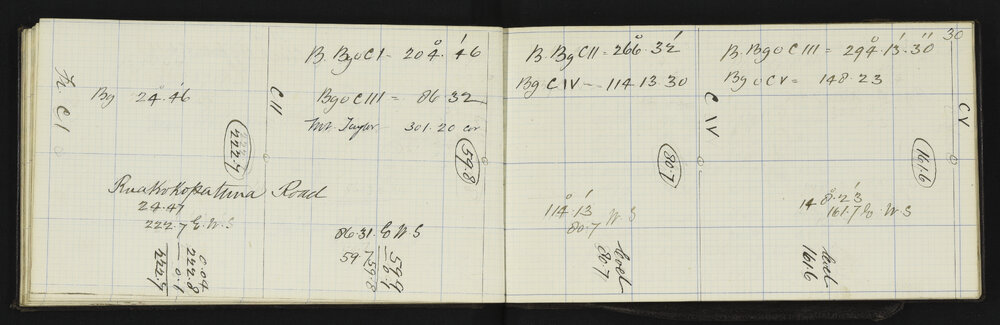 30
B. Bg ⊙ C I = 204°. 46'
Bg 24°. 46'
Bg ⊙ C III = 86. 32
Mt. Taylor 301. 20 cor
C II
222.7
59.8
Ruakokopatuna Road
24. 47
222.7 E. W. S
222.8
0.1
222.7
86.31. E W S
59.8
59.9
B. Bg C II = 266°. 32'
Bg C IV = 114. 13. 30
C IV
80.7
114°. 13'
80.7 W. S
80.7
B. Bg ⊙ C III = 294°. 13'. 30"
Bg ⊙ C V = 148. 23
C V
161.6
148°. 23'
161.7 E. W. S
161.6